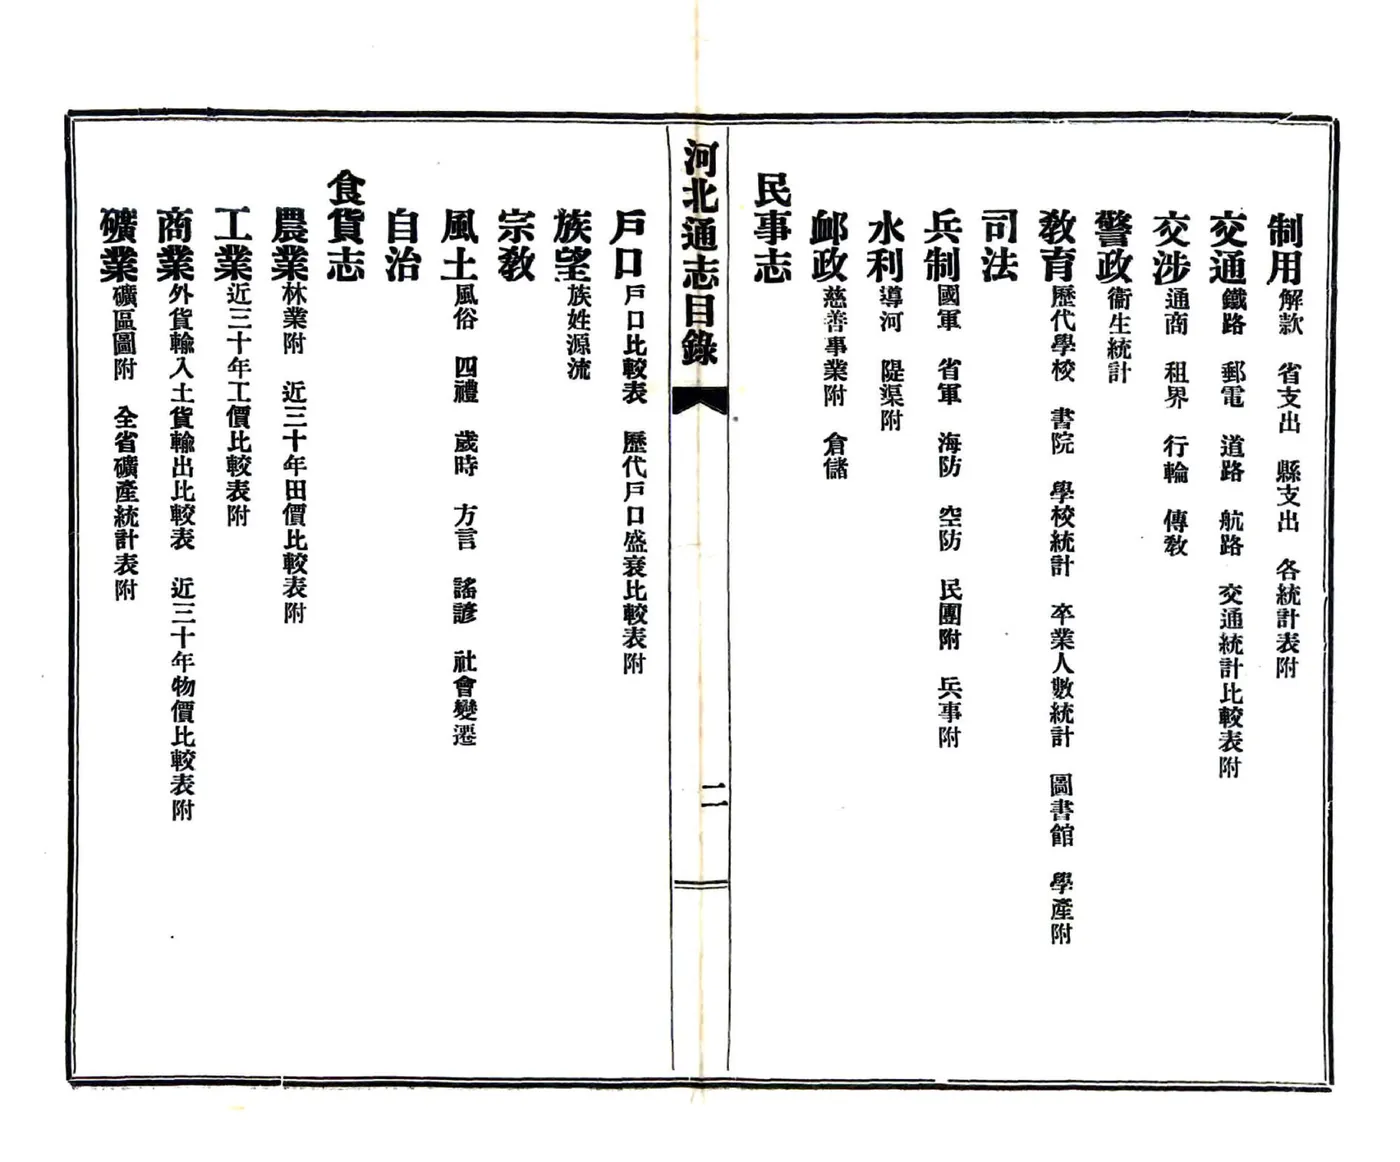 制用 解款 省支出 縣支出 各統計表附
交通 鐵路 郵電 道路 航路 交通統計比較表附
交涉 通商 租界 行輪 傳教
警政 衞生統計
教育 歷代學校 書院 學校統計 卒業人數統計 圖書館 學產附
司法
兵制 國軍 省軍 海防 空防 民團附 兵事附
水利 導河 隄渠附
卹政 慈善事業附 倉儲
民事志
河北通志目錄
二
戶口 戶口比較表 歷代戶口盛衰比較表附
族望 族姓源流
宗教
風土 風俗 四禮 歲時 方言 謠諺 社會變遷
自治
食貨志
農業 林業附 近三十年田價比較表附
工業 近三十年工價比較表附
商業 外貨輸入土貨輸出比較表 近三十年物價比較表附
礦業 礦區圖附 全省礦產統計表附